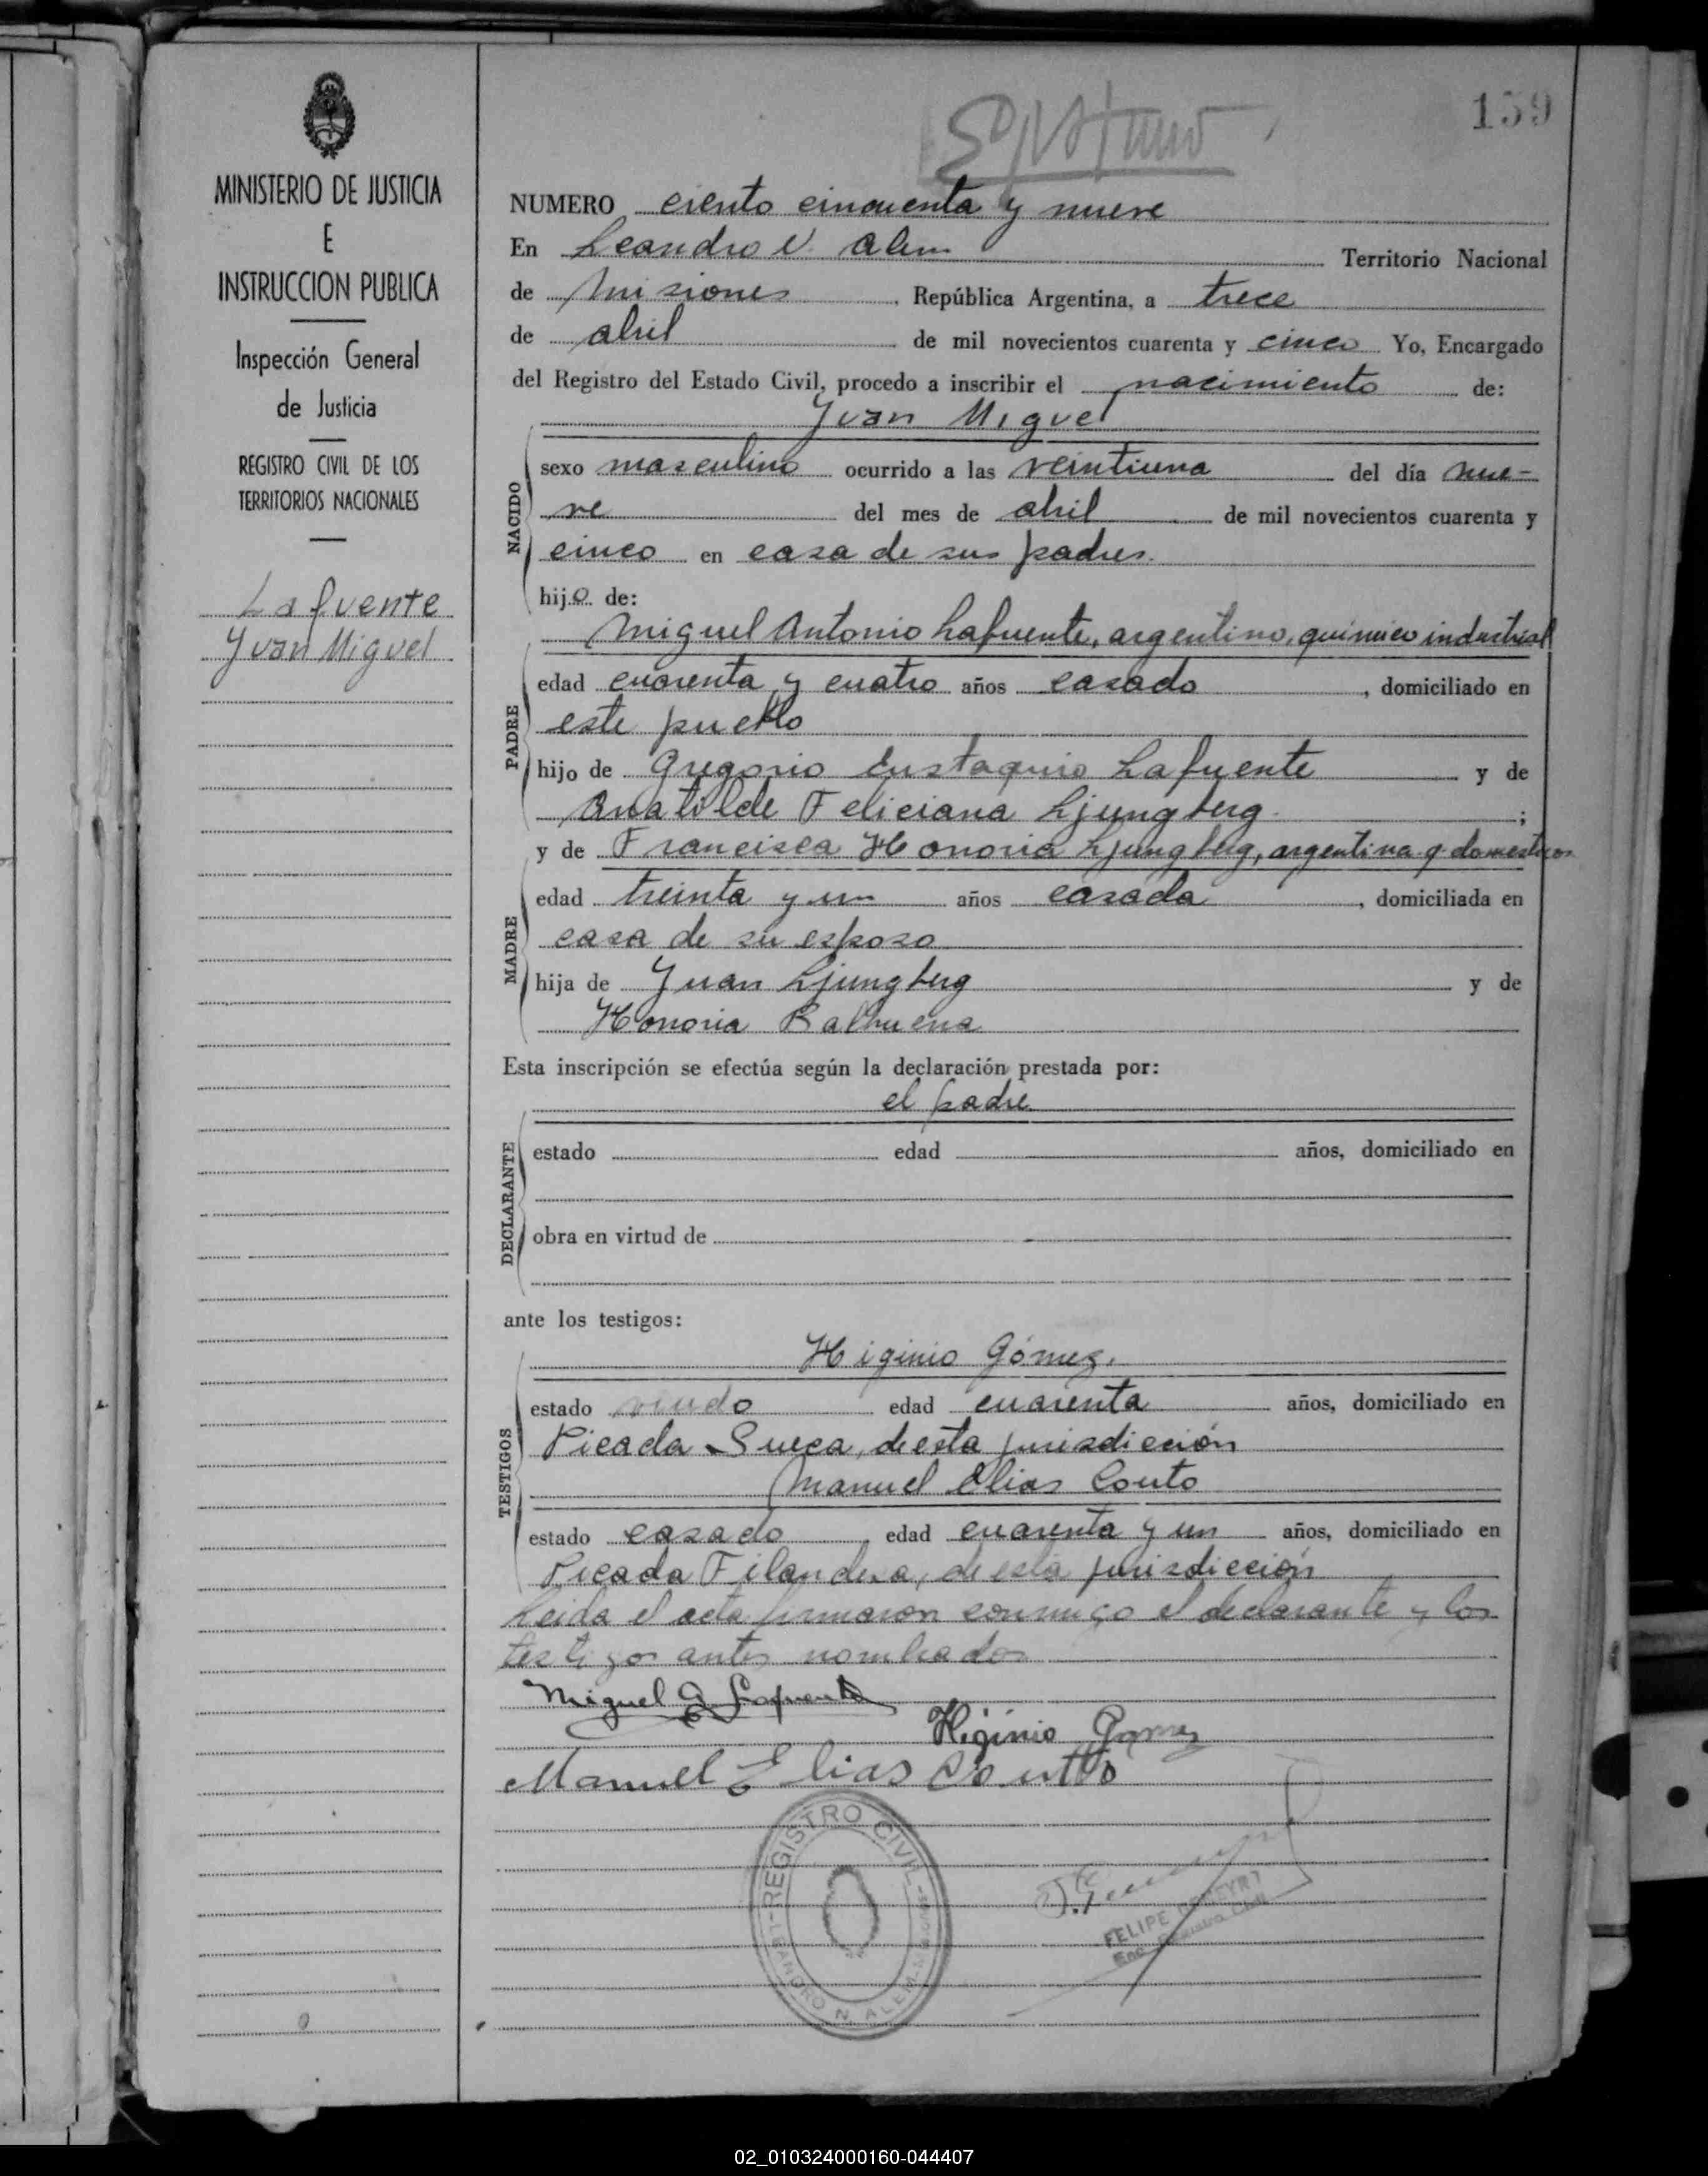 159
Septimo
MINISTERIO DE JUSTICIA
E
INSTRUCCION PUBLICA
Inspección General
de Justicia
REGISTRO CIVIL DE LOS
TERRITORIOS NACIONALES
Lafuente
Juan Miguel
NUMERO ciento cincuenta y nueve
En Leandro N. Alem Territorio Nacional
de Misiones, República Argentina, a trece
de abril de mil novecientos cuarenta y cinco Yo, Encargado
del Registro del Estado Civil, procedo a inscribir el nacimiento de:
Juan Miguel
NACIDO
sexo masculino ocurrido a las veintiuna del día nue-
ve del mes de abril de mil novecientos cuarenta y
cinco en casa de sus padres.
hijo de:
Miguel Antonio Lafuente, argentino, químico industrial
PADRE
edad cuarenta y cuatro años casado, domiciliado en
este pueblo
hijo de Gregorio Eustaquio Lafuente y de
Anatilde Feliciana Ljungberg;
y de Francisca Honoria Ljungberg, argentina q. domesticos
MADRE
edad treinta y un años casada, domiciliada en
casa de su esposo
hija de Juan Ljungberg y de
Honoria Balbuena
Esta inscripción se efectúa según la declaración prestada por:
el padre
DECLARANTE
estado edad años, domiciliado en
obra en virtud de
ante los testigos:
Higinio Gómez.
TESTIGOS
estado viudo edad cuarenta años, domiciliado en
Picada Sueca, de esta jurisdicción
Manuel Elias Couto
estado casado edad cuarenta y un años, domiciliado en
Picada Filandesa, de esta jurisdicción
Leída el acta firmaron conmigo el declarante y los
testigos antes nombrados
Miguel A Lafuente
Higinio Gomez
Manuel Elias Coutto
REGISTRO CIVIL
LEANDRO N. ALEM
FELIPE
Enc. Registro Civil
02_010324000160-044407